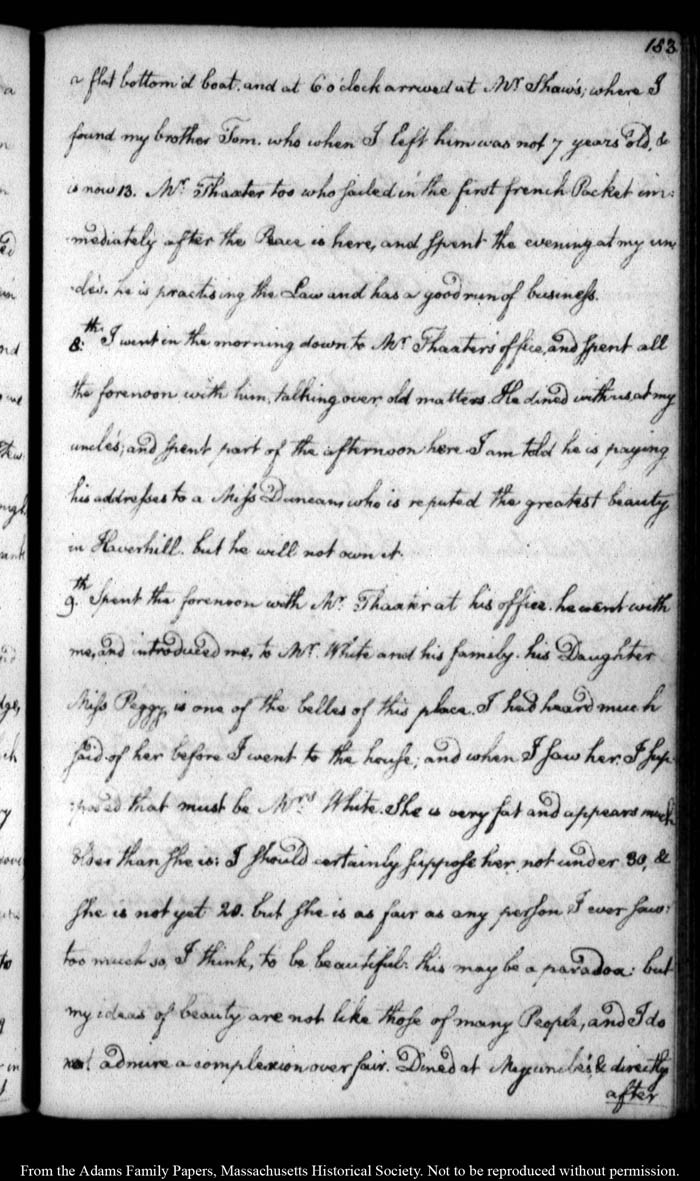 183
a flat bottom'd boat. and at 6 o'clock arrived at Mr. Shaw's; where I
found my brother Tom. who when I left him was not 7 years old, &
is now 13. Mr. Thaxter too who sailed in the first french Packet im:
mediately after the Peace is here, and spent the evening at my un
cle's. he is practising the Law and has a good run of business.
8.th I went in the morning down to Mr. Thaxter's office, and spent all
the forenoon with him, talking over old matters. He dined with us at my
uncle's; and spent part of the afternoon here. I am told he is paying
his addresses to a Miss Duncan, who is reputed the greatest beauty
in Haverhill. but he will not own it.
9.th Spent the forenoon with Mr. Thaxter at his office. he went with
me, and introduced me, to Mr. White and his family. his Daughter
Miss Peggy, is one of the belles of this place. I had heard much
said of her before I went to the house; and when I saw her, I sup
posed that must be Mrs. White. She is very fat and appears much
older than she is: I should certainly suppose her not under 30, &
she is not yet 20. but she is as fair as any person I ever saw:
too much so, I think, to be beautiful: this may be a paradox: but
my ideas of beauty are not like those of many People, and I do
not admire a complexion over fair. Dined at My uncle's, & directly
after
From the Adams Family Papers, Massachusetts Historical Society. Not to be reproduced without permission.